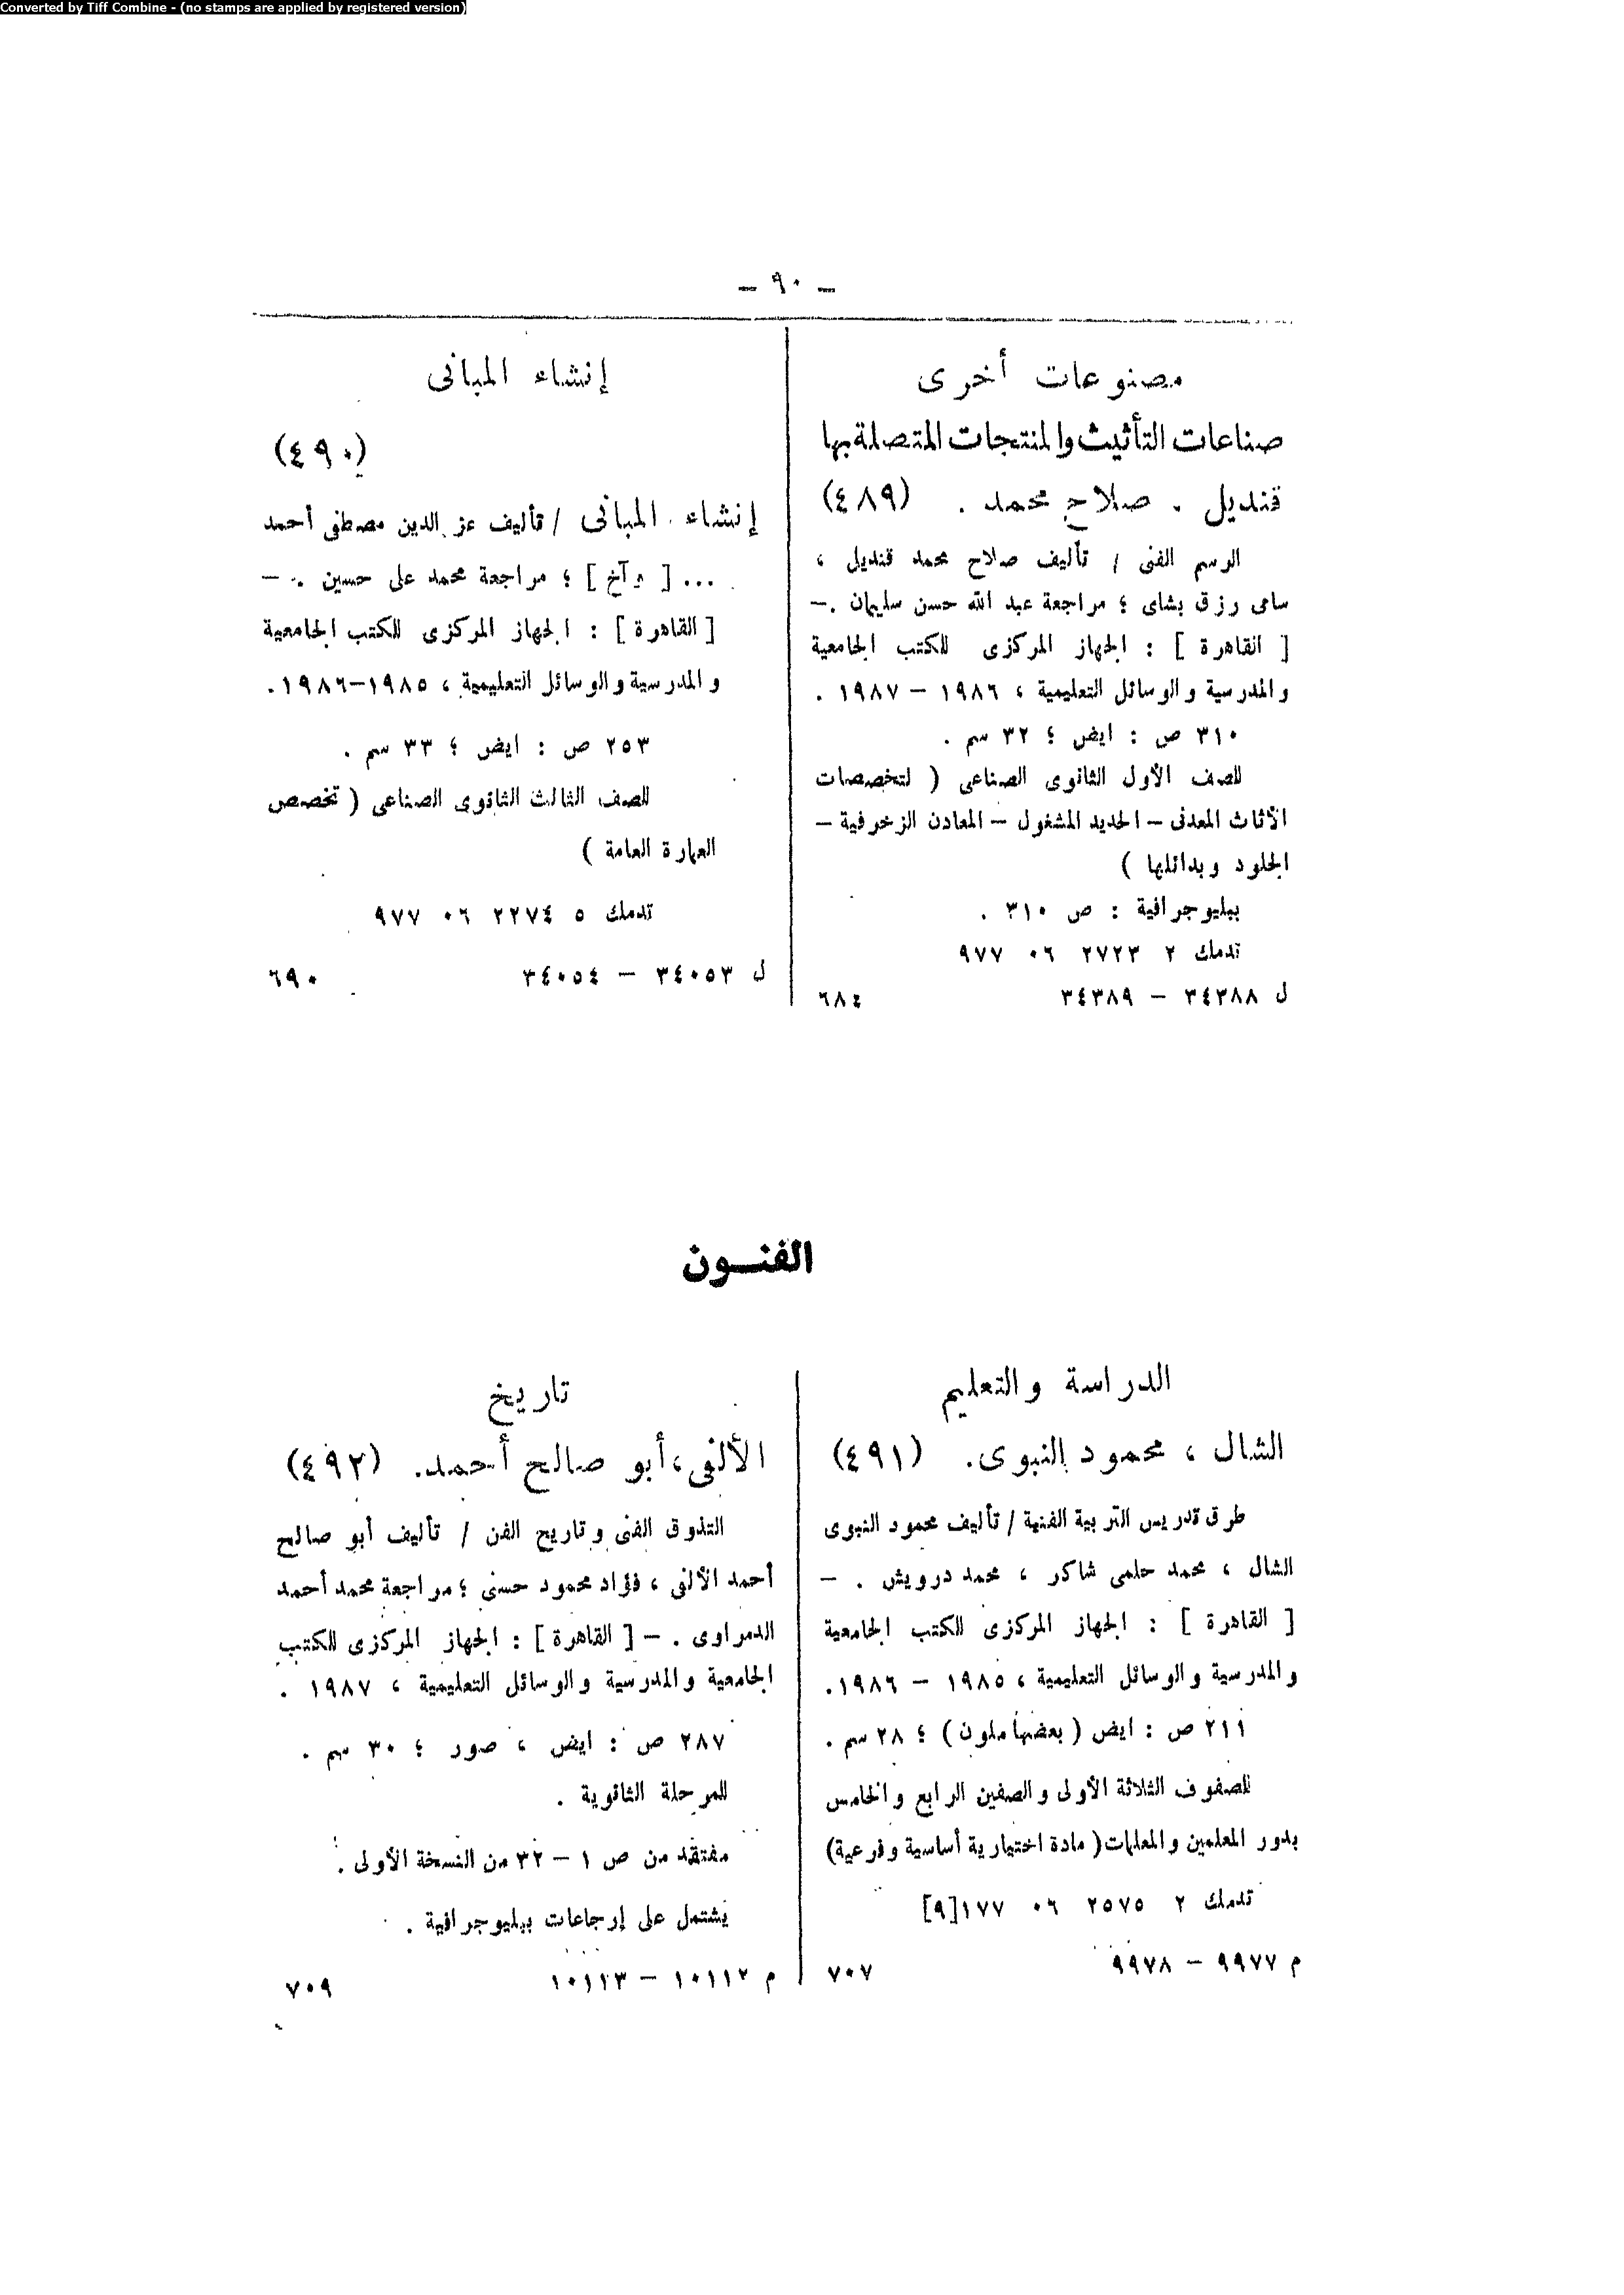 Converted by Tiff Combine - (no stamps are applied by registered version)
— ٩٠ —
مصنوعات أخرى
صناعات التأثيث والمنتجات المتصلة بها
قنديل . صلاح محمد . (٤٨٩)
الرسم الفنى / تأليف صلاح محمد قنديل ،
سامى رزق بشاى ؛ مراجعة عبد الله حسن سليمان .—
[ القاهرة ] : الجهاز المركزى للكتب الجامعية
والمدرسية والوسائل التعليمية ، ١٩٨٦ – ١٩٨٧ .
٣١٠ ص : ايض ؛ ٣٢ سم .
للصف الأول الثانوى الصناعى ( لتخصصات
الأثاث المعدنى – الحديد المشغول – المعادن الزخرفية –
الجلود وبدائلها )
ببليوجرافية : ص ٣١٠ .
تدمك ٢ ٢٧٢٣ ٠٦ ٩٧٧
ل ٣٤٣٨٨ – ٣٤٣٨٩ ٦٨٤
إنشاء المبانى
(٤٩٠)
إنشاء المبانى / تأليف عز الدين مصطفى أحمد
... [ وآخ ] ؛ مراجعة محمد على حسين .—
[ القاهرة ] : الجهاز المركزى للكتب الجامعية
والمدرسية والوسائل التعليمية ، ١٩٨٥–١٩٨٦.
٢٥٣ ص : ايض ؛ ٣٣ سم .
للصف الثالث الثانوى الصناعى ( تخصص
العمارة العامة )
تدمك ٥ ٢٢٧٤ ٠٦ ٩٧٧
ل ٣٤٠٥٣ – ٣٤٠٥٤ ٦٩٠
الفنــون
الدراسة والتعليم
الشال ، محمود النبوى. (٤٩١)
طرق تدريس التربية الفنية / تأليف محمود النبوى
الشال ، محمد حلمى شاكر ، محمد درويش . —
[ القاهرة ] : الجهاز المركزى للكتب الجامعية
والمدرسية والوسائل التعليمية ، ١٩٨٥ – ١٩٨٦.
٢١١ ص : ايض ( بعضها ملون ) ؛ ٢٨ سم .
للصفوف الثلاثة الأولى والصفين الرابع والخامس
بدور المعلمين والمعلمات ( مادة اختيارية أساسية وفرعية)
تدمك ٢ ٢٥٧٥ ٠٦ ١٧٧[٩]
م ٩٩٧٧ – ٩٩٧٨ ٧٠٧
تاريخ
الألفى ، أبو صالح أحمد. (٤٩٢)
التذوق الفنى وتاريخ الفن / تأليف أبو صالح
أحمد الألفى ، فؤاد محمود حسنى ؛ مراجعة محمد أحمد
الدمراوى . — [ القاهرة ] : الجهاز المركزى للكتب
الجامعية والمدرسية والوسائل التعليمية ، ١٩٨٧ .
٢٨٧ ص : ايض ، صور ؛ ٣٠ سم .
للمرحلة الثانوية .
مفتقد من ص ١ – ٣٢ من النسخة الأولى .
يشتمل على إرجاعات ببليوجرافية .
م ١٠١١٢ – ١٠١١٣ ٧٠٩